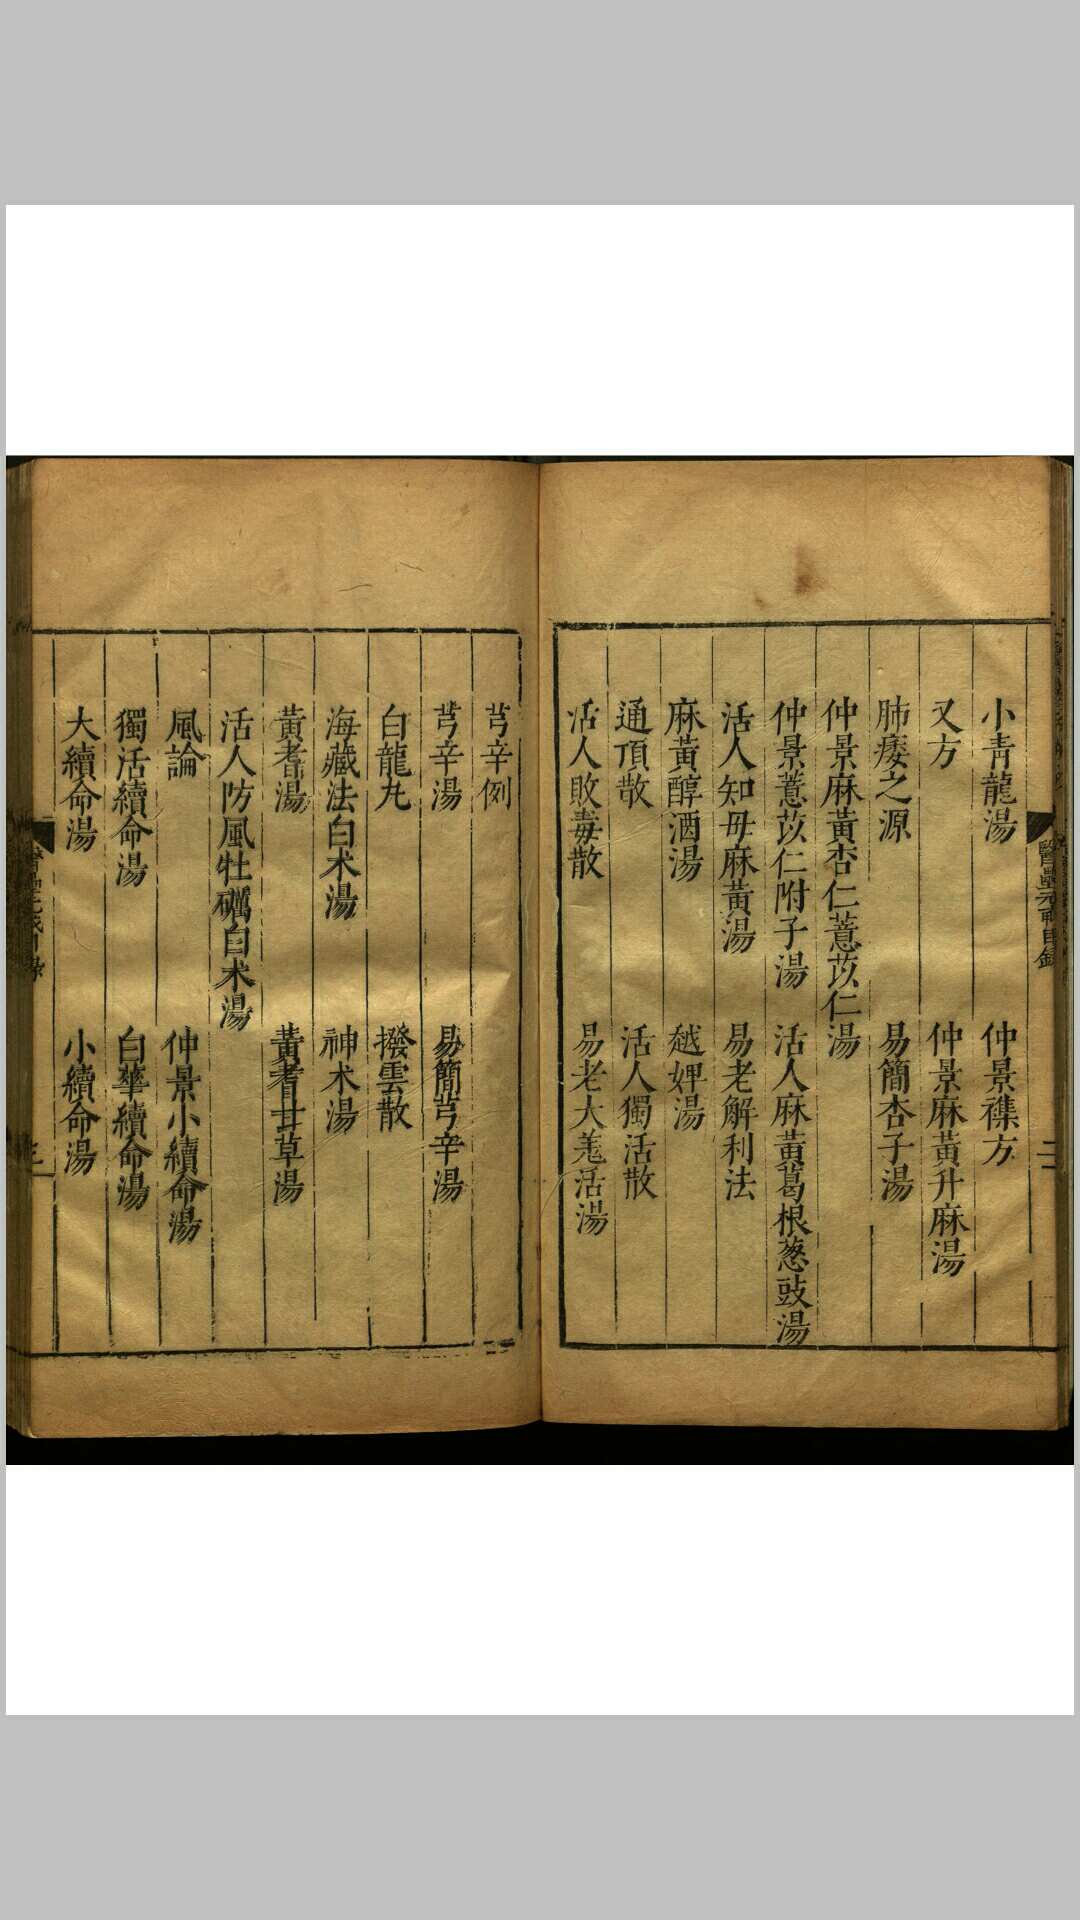 小青龍湯　仲景襍方
又方　仲景麻黃升麻湯
肺痿之源　易簡杏子湯
仲景麻黃杏仁薏苡仁湯
仲景薏苡仁附子湯　活人麻黃葛根蔥豉湯
活人知母麻黃湯　易老解利法
麻黃醇酒湯　越婢湯
通頂散　活人獨活散
活人敗毒散　易老大羗活湯
芎辛例
芎辛湯　易簡芎辛湯
白龍丸　撥雲散
海藏法白术湯　神术湯
黃耆湯　黃耆甘草湯
活人防風牡礪白术湯
風論　仲景小續命湯
獨活續命湯　白華續命湯
大續命湯　小續命湯